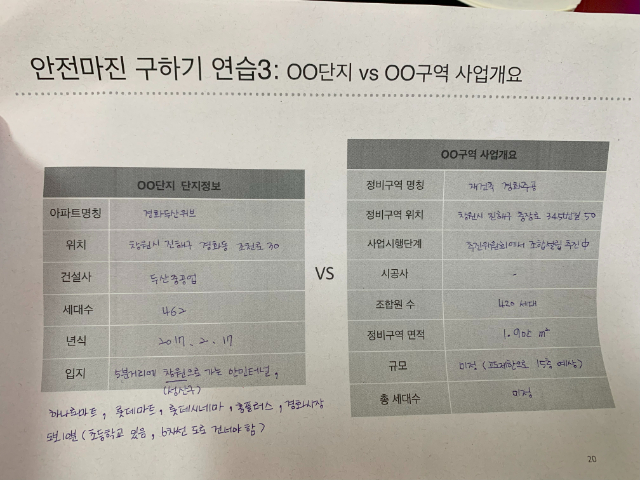 안전마진 구하기 연습3: OO단지 vs OO구역 사업개요
OO단지 단지정보
아파트명칭 경화두산위브
위치 창원시 진해구 경화동 조천로 30
건설사 두산중공업
세대수 462
년식 2017. 2. 17
입지 5분거리에 창원으로 가는 안민터널,
(성산구)
하나로마트, 롯데마트, 롯데시네마, 홈플러스, 경화시장
도보10분 (초등학교 있음, 6차선 도로 건너야 함)
VS
OO구역 사업개요
정비구역 명칭 재건축 경화주공
정비구역 위치 창원시 진해구 충장로 345번길 50
사업시행단계 추진위원회에서 조합설립 추진 中
시공사 -
조합원 수 420 세대
정비구역 면적 1.9만 ㎡
규모 미정 ( 15층 예상)
총 세대수 미정
20